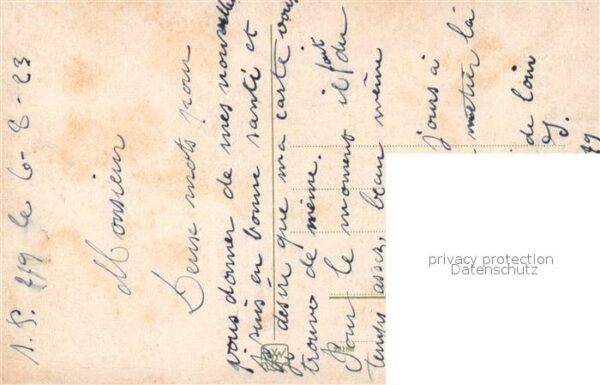 S.P. 219 le 6-8-23
Monsieur
Deux mots pour
vous donner de mes nouvelles
je suis en bonne santé et
je desire que ma carte vous
trouve de même.
Pour le moment il fait du
temps assez beau même
jours à
la
de loin
privacy protection
Datenschutz